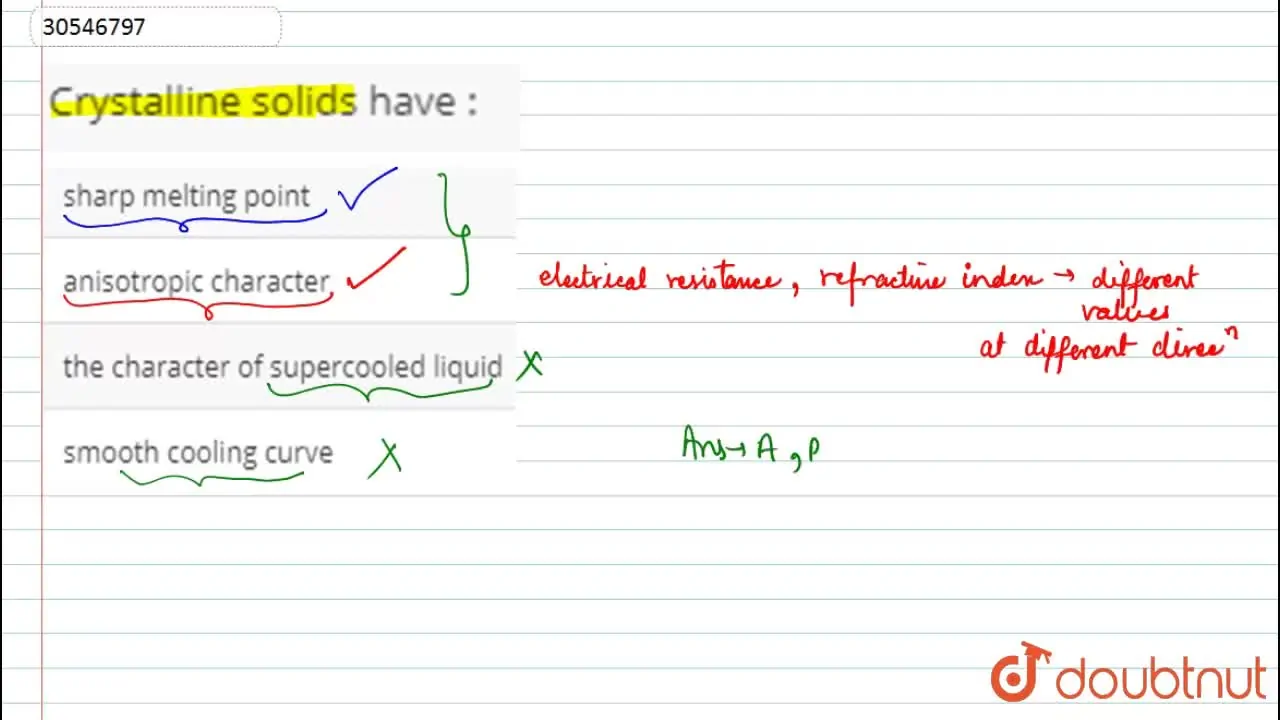 30546797
Crystalline solids have :
sharp melting point ✓
anisotropic character ✓
electrical resistance, refractive index → different
values
at different direcⁿ
the character of supercooled liquid X
smooth cooling curve X
Ans → A,
doubtnut